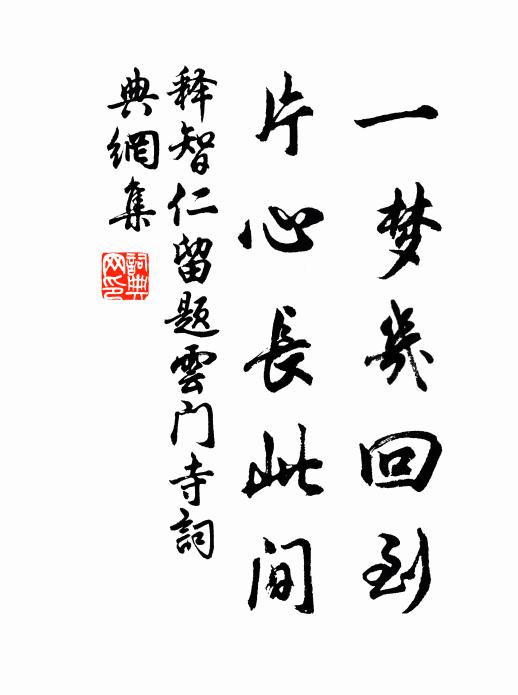 一梦几回到
片心長此间
释智仁留题雲门寺詞
典網集
詞典网印